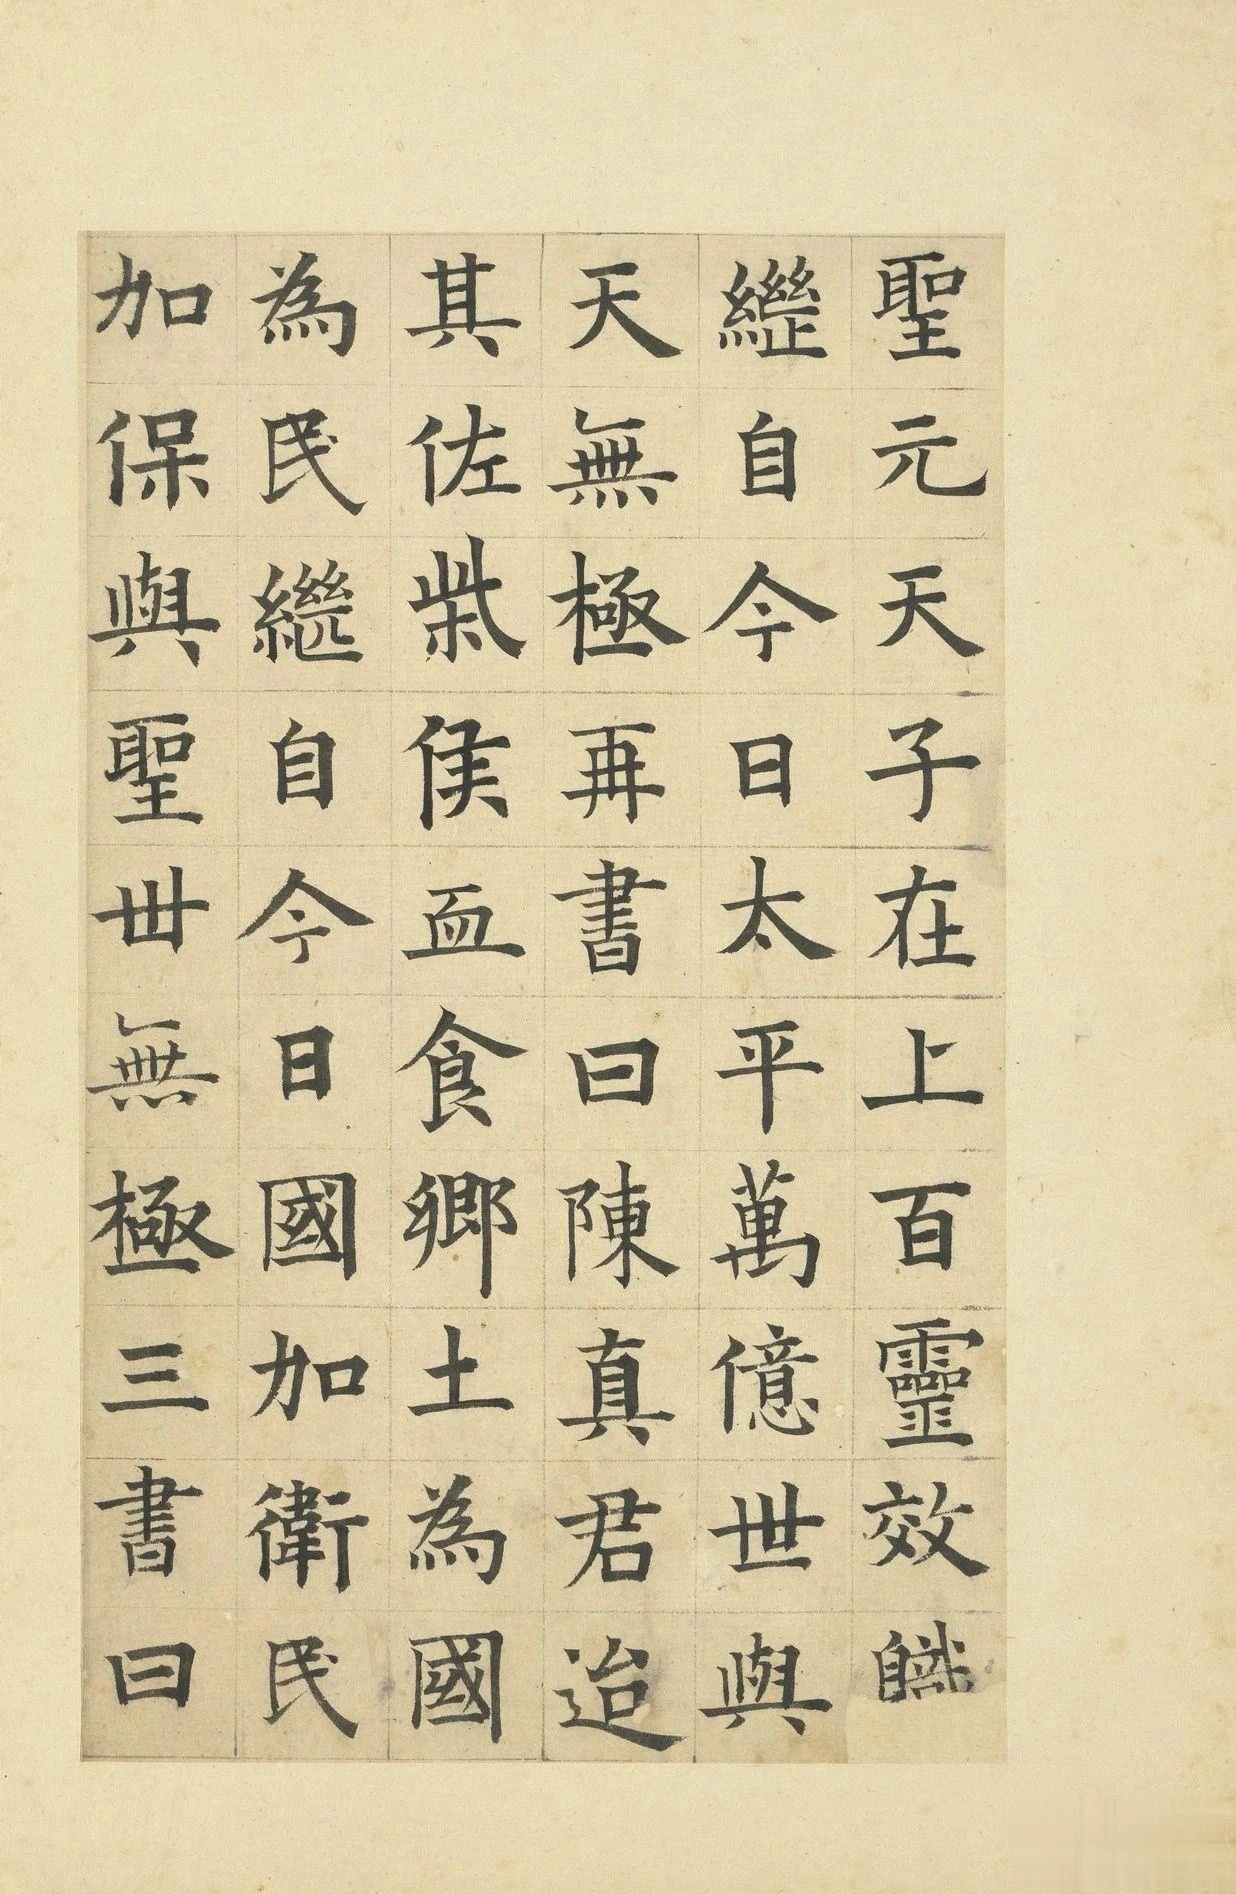 聖元天子在上百靈效職
繼自今日太平萬億世與
天無極再書曰陳真君迨
其佐柴侯血食鄉土為國
為民繼自今日國加衛民
加保與聖世無極三書曰